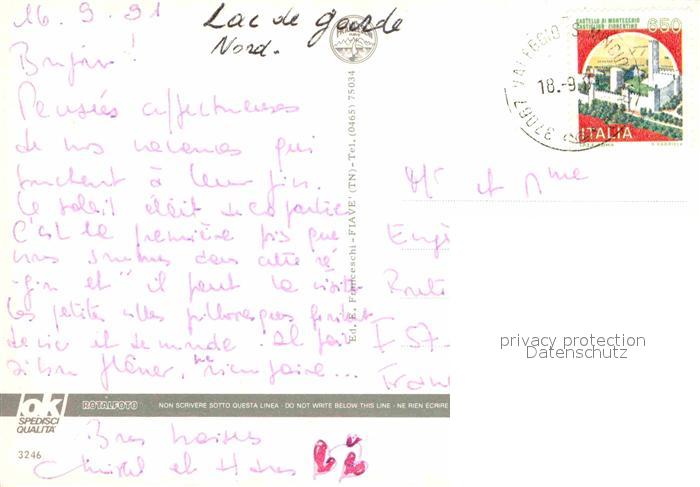 16.9.91
Lac de garde
Nord.
CASTELLO DI MONTECCHIO
CASTIGLION FIORENTINO
650
ITALIA
37067 VALEGGIO S. MINCIO
18.-9.
Pensées affectueuses
de nos vacances qui
touchent à leur fin.
Le soleil était de la partie
C'est la première fois que
nous sommes dans cette ré
-gion et il faut la visiter
Les petites villes pittoresques
de vie et de monde. Il fait
si bon flâner, ne rien faire...
Ed. E. Franceschi - FIAVE' (TN) - Tel. (0465) 75034
Mr et Mme
Route
F 57
Fran
privacy protection
Datenschutz
ok
SPEDISCI
QUALITA'
ROTALFOTO
NON SCRIVERE SOTTO QUESTA LINEA - DO NOT WRITE BELOW THIS LINE - NE RIEN ECRIRE
3246
Bons baisers
et